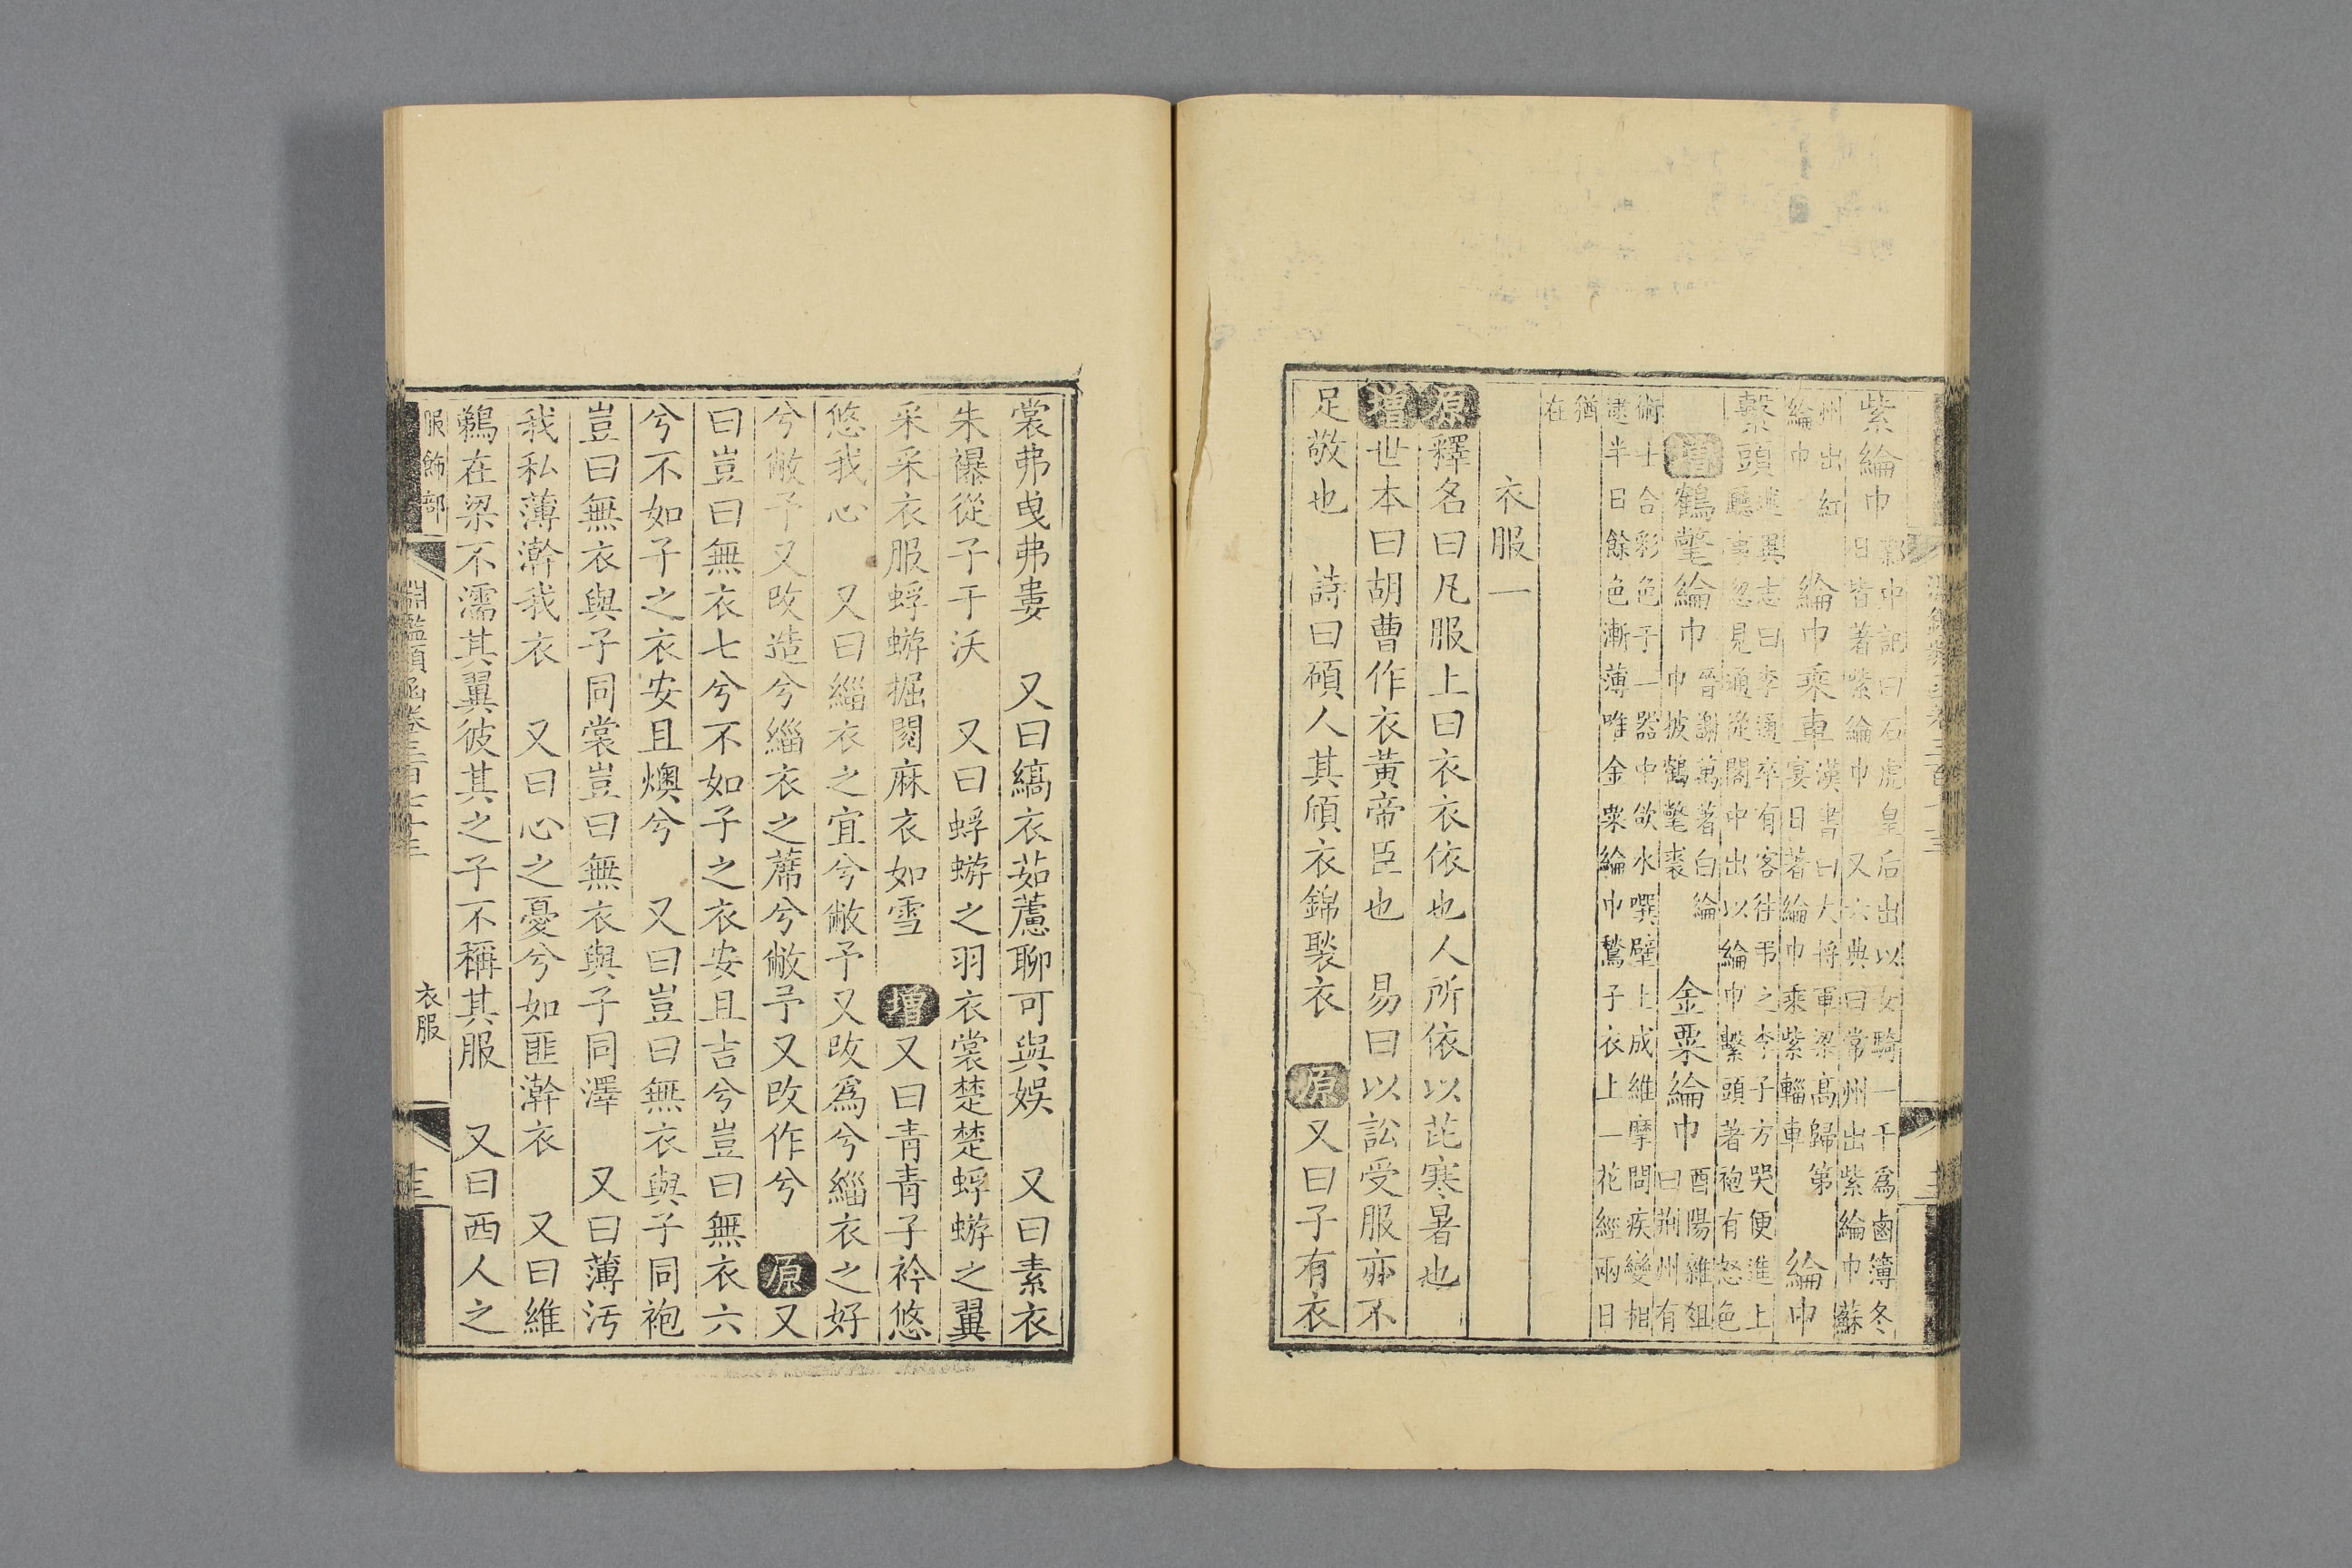 紫綸巾鄴中記曰石虎皇后出以女騎一千爲鹵簿冬
日皆著紫綸巾 又六典曰常州出紫綸巾蘇
州出紅
綸巾
綸巾乘車漢書曰大將軍梁髙歸第
宴日著綸巾乘紫輜車
綸巾
繫頭述異志曰李通卒有客往弔之李子方哭便進上
廳事忽見通從閤中出以綸巾繫頭著袍有怒色
增鶴氅綸巾晉謝萬著白綸
巾披鶴氅裘
金粟綸巾酉陽雜俎
曰荆州有
術士合彩色子一器中欱水噀壁上成維摩問疾變相
逮半日餘色漸薄唯金粟綸巾鶖子衣上一花經兩日
猶
在
衣服一
原釋名曰凡服上曰衣衣依也人所依以芘寒暑也
增世本曰胡曹作衣黃帝臣也 易曰以訟受服亦不
足敬也 詩曰碩人其頎衣錦褧衣 原又曰子有衣
裳弗曵弗婁 又曰縞衣茹藘聊可與娛 又曰素衣
朱襮從子于沃 又曰蜉蝣之羽衣裳楚楚蜉蝣之翼
采采衣服蜉蝣掘閱麻衣如雪 增又曰青青子衿悠
悠我心 又曰緇衣之宜兮敝予又改爲兮緇衣之好
兮敝予又改造兮緇衣之蓆兮敝予又改作兮 原又
曰豈曰無衣七兮不如子之衣安且吉兮豈曰無衣六
兮不如子之衣安且燠兮 又曰豈曰無衣與子同袍
豈曰無衣與子同裳豈曰無衣與子同澤 又曰薄汚
我私薄澣我衣 又曰心之憂兮如匪澣衣 又曰維
鵜在梁不濡其翼彼其之子不稱其服 又曰西人之
服飾部
淵鑑類函卷三百七十三
衣服